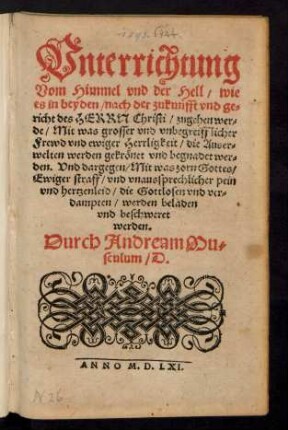 Vnterrichtung
Vom Himmel vnd der Hell / wie
es in beyden / nach der zukunfft vnd ge-
richt des HERRN Christi / zugehen wer-
de / Mit was grosser vnd vnbegreifflicher
Frewd vnd ewiger Herrligkeit / die Auser-
welten werden gekrönet vnd begnadet wer-
den. Vnd dargegen / Mit was zorn Gottes /
Ewiger straff / vnd vnaussprechlicher pein
vnd hertzenleid / die Gottlosen vnd ver-
dampten / werden beladen
vnd beschweret
werden.
Durch Andream Mu-
sculum / D.
ANNO M. D. LXI.
N 26